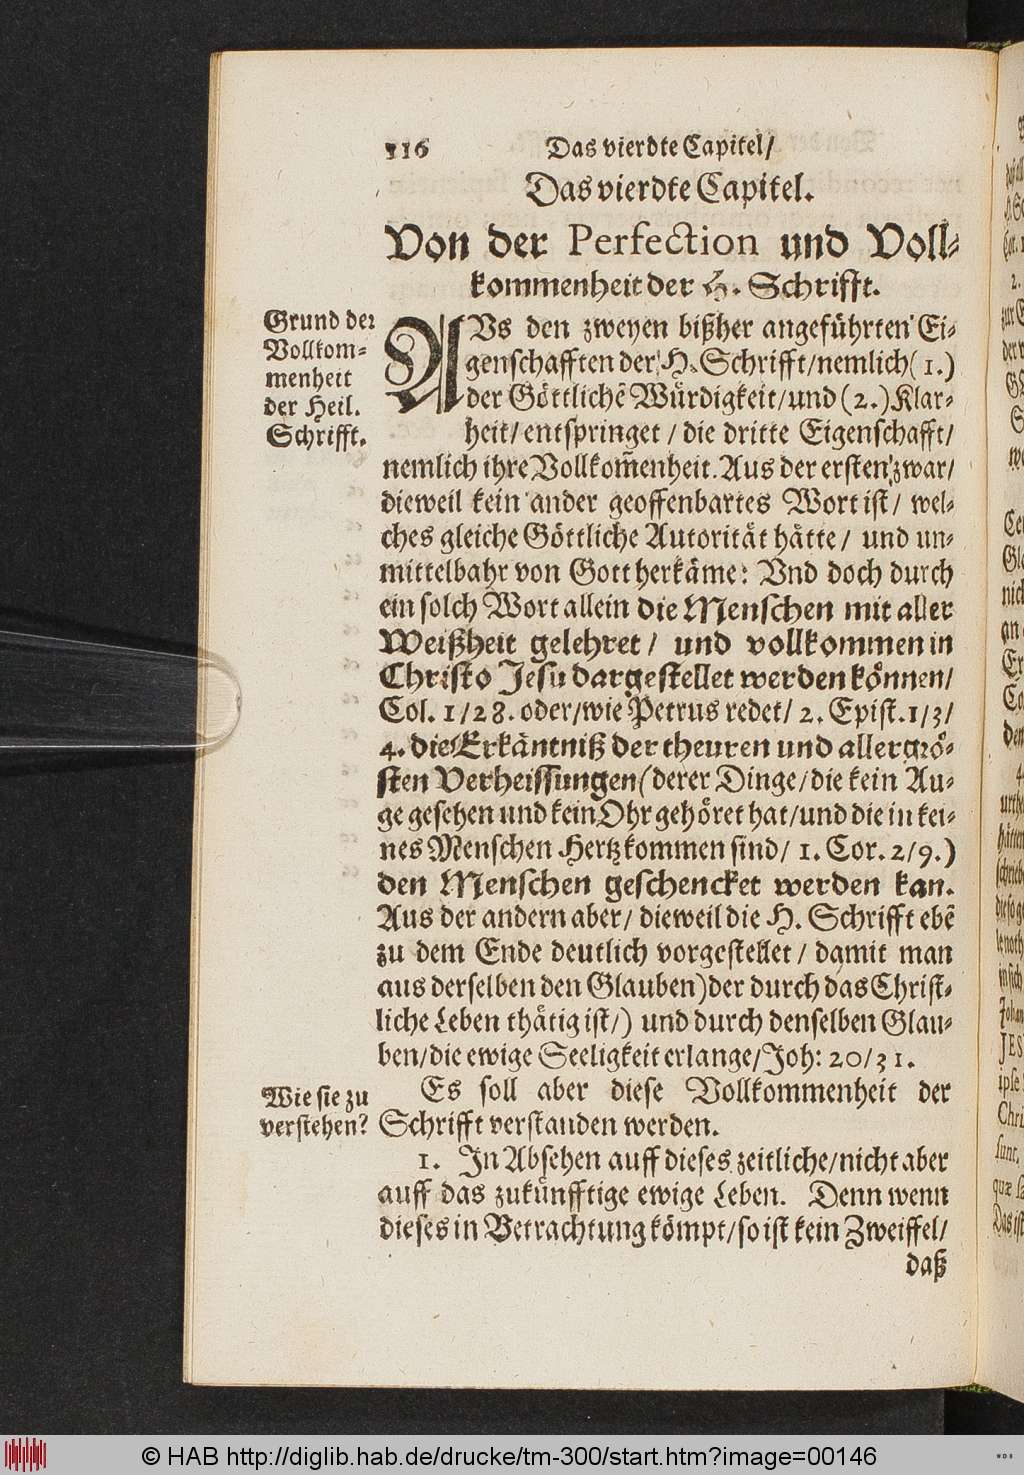 116 Das vierdte Capitel/
Das vierdte Capitel.
Von der Perfection und Voll-
kommenheit der H. Schrifft.
Grund der
Vollkom-
menheit
der Heil.
Schrifft.
AUs den zweyen bißher angeführten Ei-
genschafften der H. Schrifft/nemlich (1.)
der Göttlichẽ Würdigkeit/und (2.) Klar-
heit/ entspringet / die dritte Eigenschafft/
nemlich ihre Vollkom̃enheit. Aus der ersten zwar/
dieweil kein ander geoffenbartes Wort ist/ wel-
ches gleiche Göttliche Autorität hätte/ und un-
mittelbahr von Gott herkäme: Vnd doch durch
ein solch Wort allein die Menschen mit aller
Weißheit gelehret/ und vollkommen in
Christo Jesu dargestellet werden können/
Col. 1/28. oder/wie Petrus redet/ 2. Epist. 1/3/
4. die Erkäntniß der theuren und allergrö-
sten Verheissungen (derer Dinge/die kein Au-
ge gesehen und kein Ohr gehöret hat/und die in kei-
nes Menschen Hertz kommen sind/ 1. Cor. 2/9.)
den Menschen geschencket werden kan.
Aus der andern aber/ dieweil die H. Schrifft ebẽ
zu dem Ende deutlich vorgestellet/ damit man
aus derselben den Glauben) der durch das Christ-
liche Leben thätig ist/) und durch denselben Glau-
ben/die ewige Seeligkeit erlange/Joh: 20/31.
Wie sie zu
verstehen?
Es soll aber diese Vollkommenheit der
Schrifft verstanden werden.
1. In Absehen auff dieses zeitliche/nicht aber
auff das zukünfftige ewige Leben. Denn wenn
dieses in Betrachtung kömpt/so ist kein Zweiffel/
daß
© HAB http://diglib.hab.de/drucke/tm-300/start.htm?image=00146